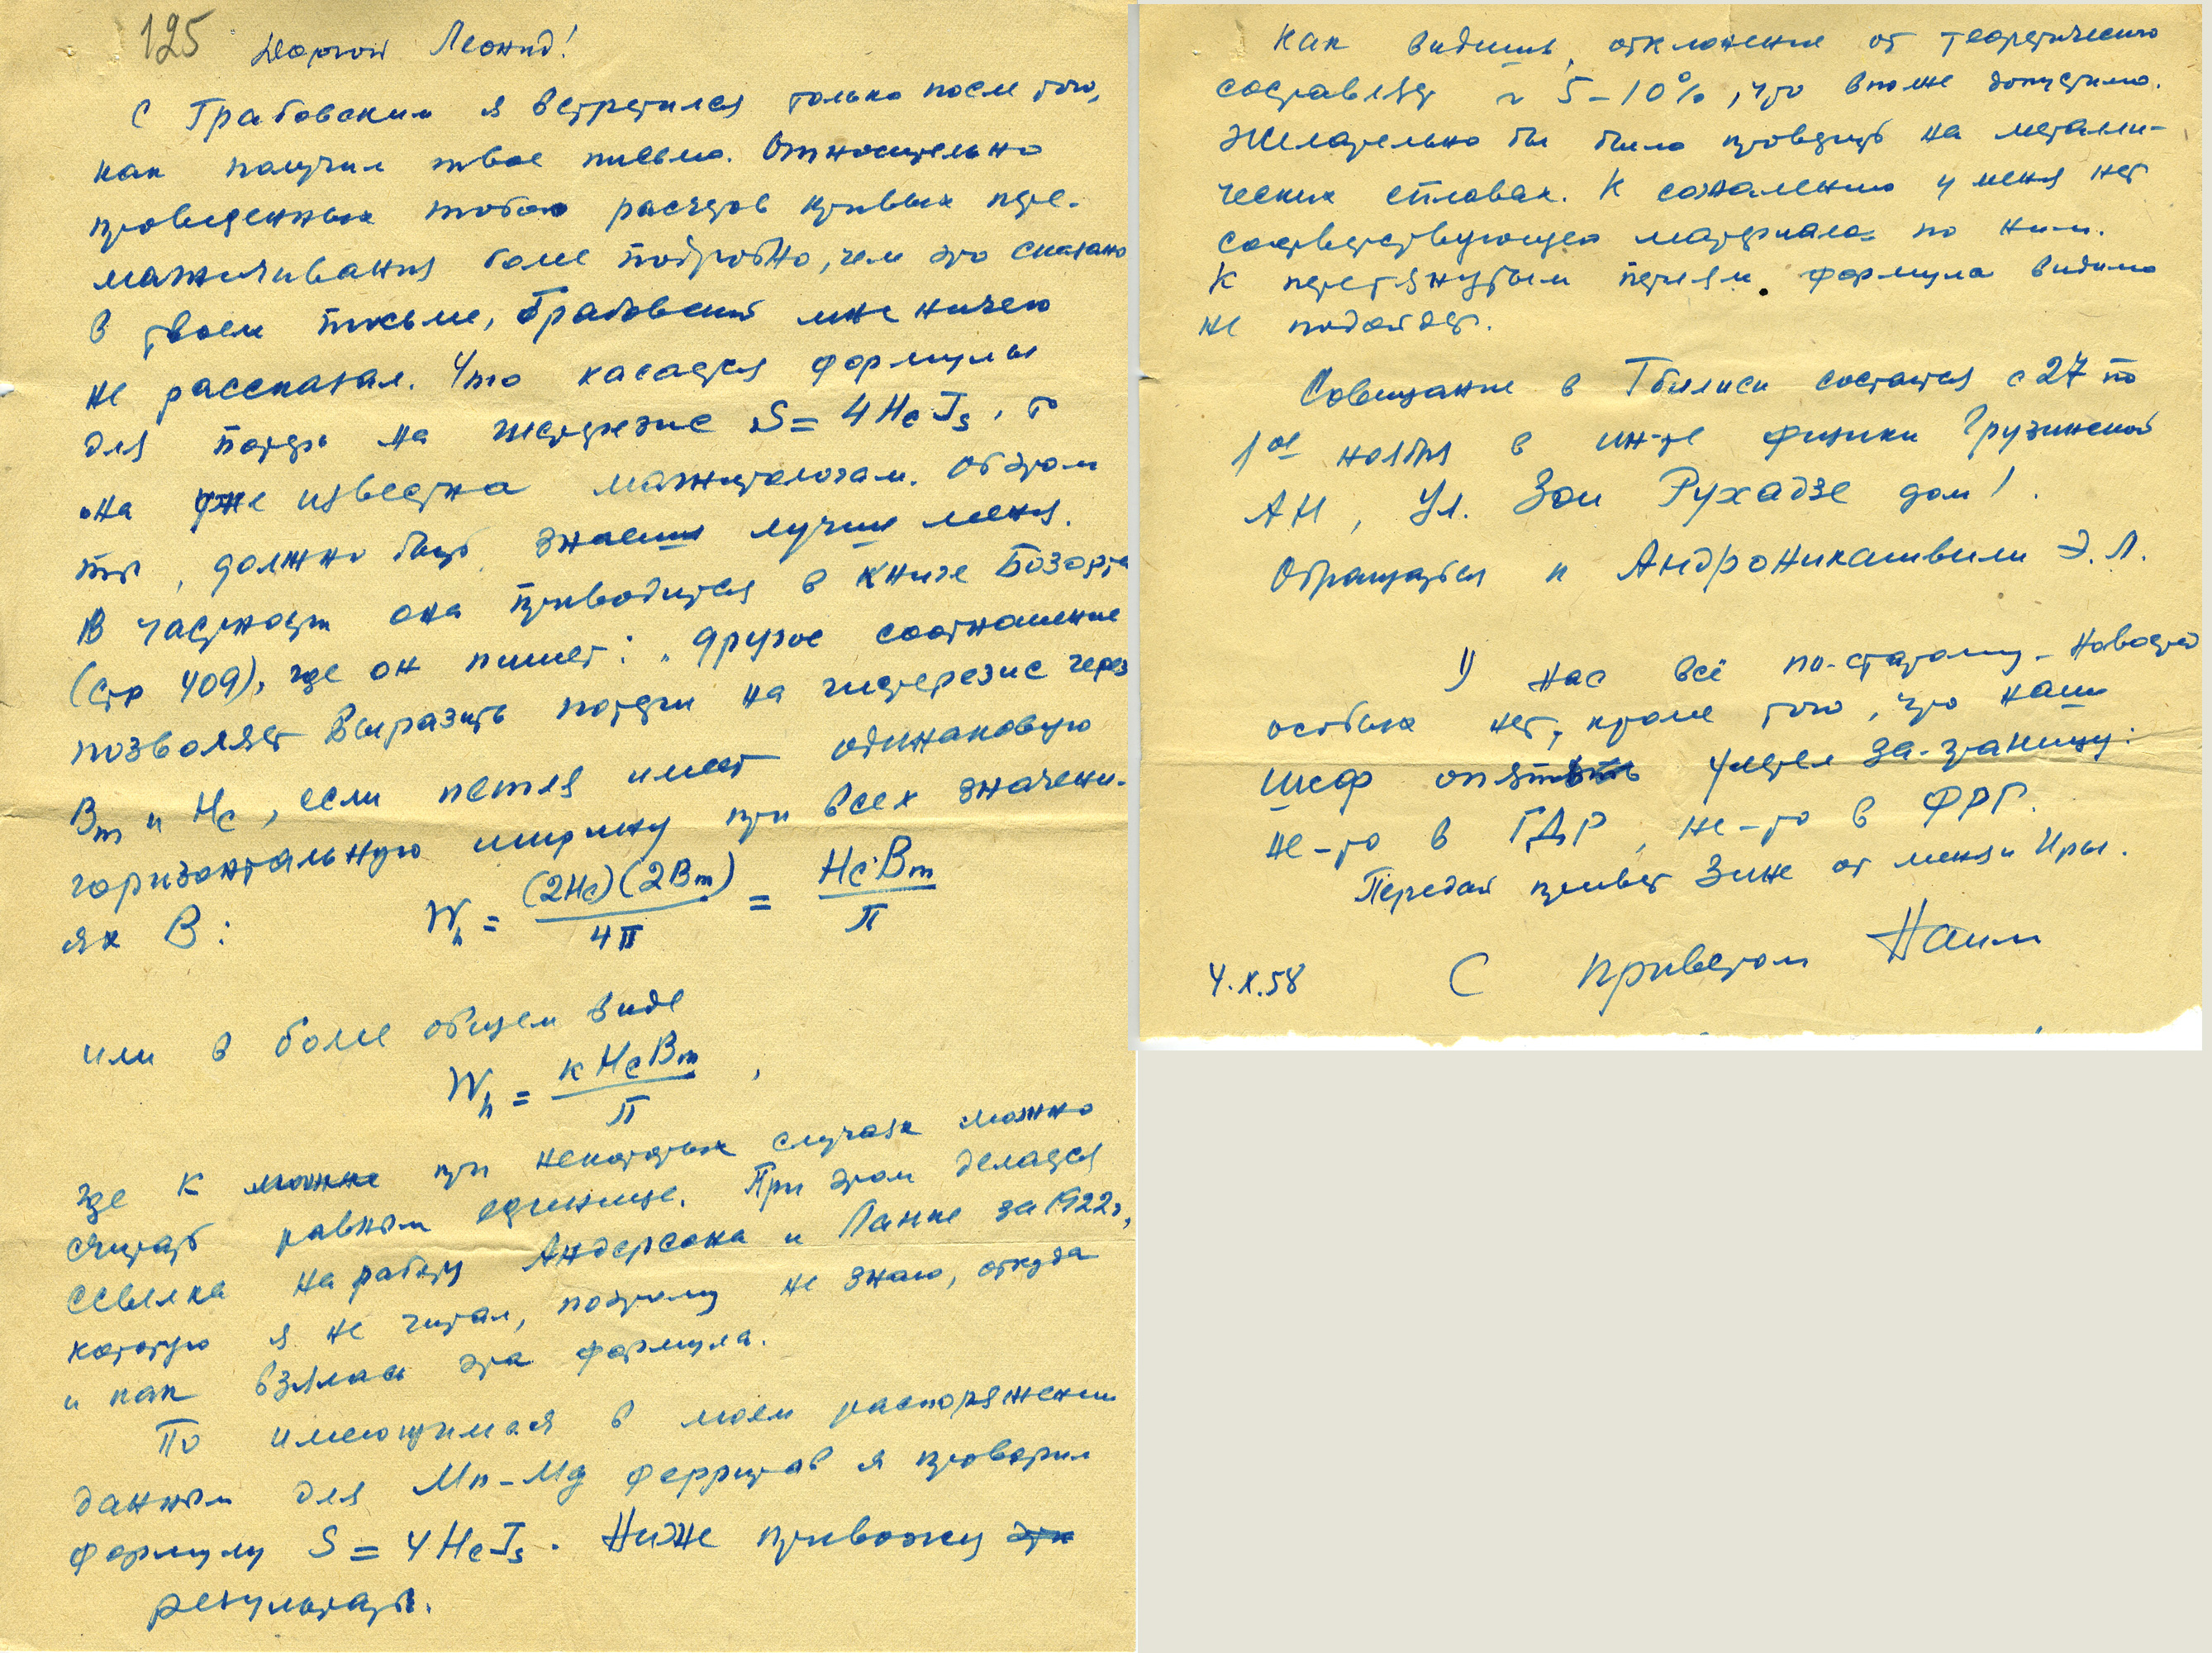 125
Дорогой Леонид!
С Грабовским я встретился только после того,
как получил твое письмо. Относительно
проведенных тобою расчетов кривых пере-
магничивания более подробно, чем это сказано
в твоем письме, Грабовский мне ничего
не рассказал. Что касается формулы
для потерь на гистерезис S = 4HcJs, то
она уже известна магнитологам. Об этом
ты, должно быть, знаешь лучше меня.
В частности она приводится в книге Бозорта
(стр 409), где он пишет: „Другое соотношение
позволяет выразить потери на гистерезис через
Bm и Hc, если петля имеет одинаковую
горизонтальную ширину при всех значени-
ях B: Wh = (2Hc)(2Bm)/4π = HcBm/π
или в более общем виде
Wh = кHcBm/π,
где к можно при некоторых случаях можно
считать равным единице. При этом делается
ссылка на работу Андерсона и Ланке за 1922г,
которую я не читал, поэтому не знаю, откуда
и как взялась эта формула.
По имеющимся в моем распоряжении
данным для Mn-Mg ферритов я проверил
формулу S = 4HcJs. Ниже привожу эти
результаты.
Как видишь, отклонение от теоретического
составляет ~ 5-10%, что вполне допустимо.
Желательно бы было проверить на металли-
ческих сплавах. К сожалению у меня нет
соответствующего материала по ним.
К перетянутым петлям формула видимо
не подойдет.
Совещание в Тбилиси состоится с 27 по
1ое ноября в ин-те физики Грузинской
АН, Ул. Зои Рухадзе дом 1.
Обращаться к Андроникашвили Э.Л.
У нас всё по-старому. Новостей
особых нет, кроме того, что наш
шеф опять уехал за-границу:
не-то в ГДР, не-то в ФРГ.
Передай привет Зине от меня и Иры.
С приветом Наим
4.X.58